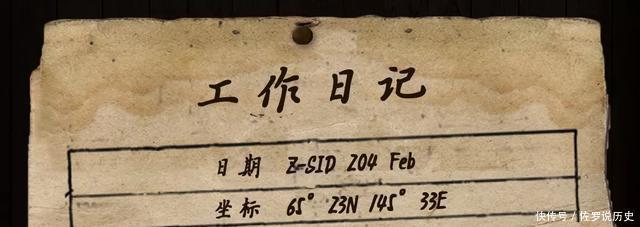 工作日记
日期 Z-SID Z04 Feb
坐标 65° Z3N 145° 33E
快传号 / 佐罗说历史